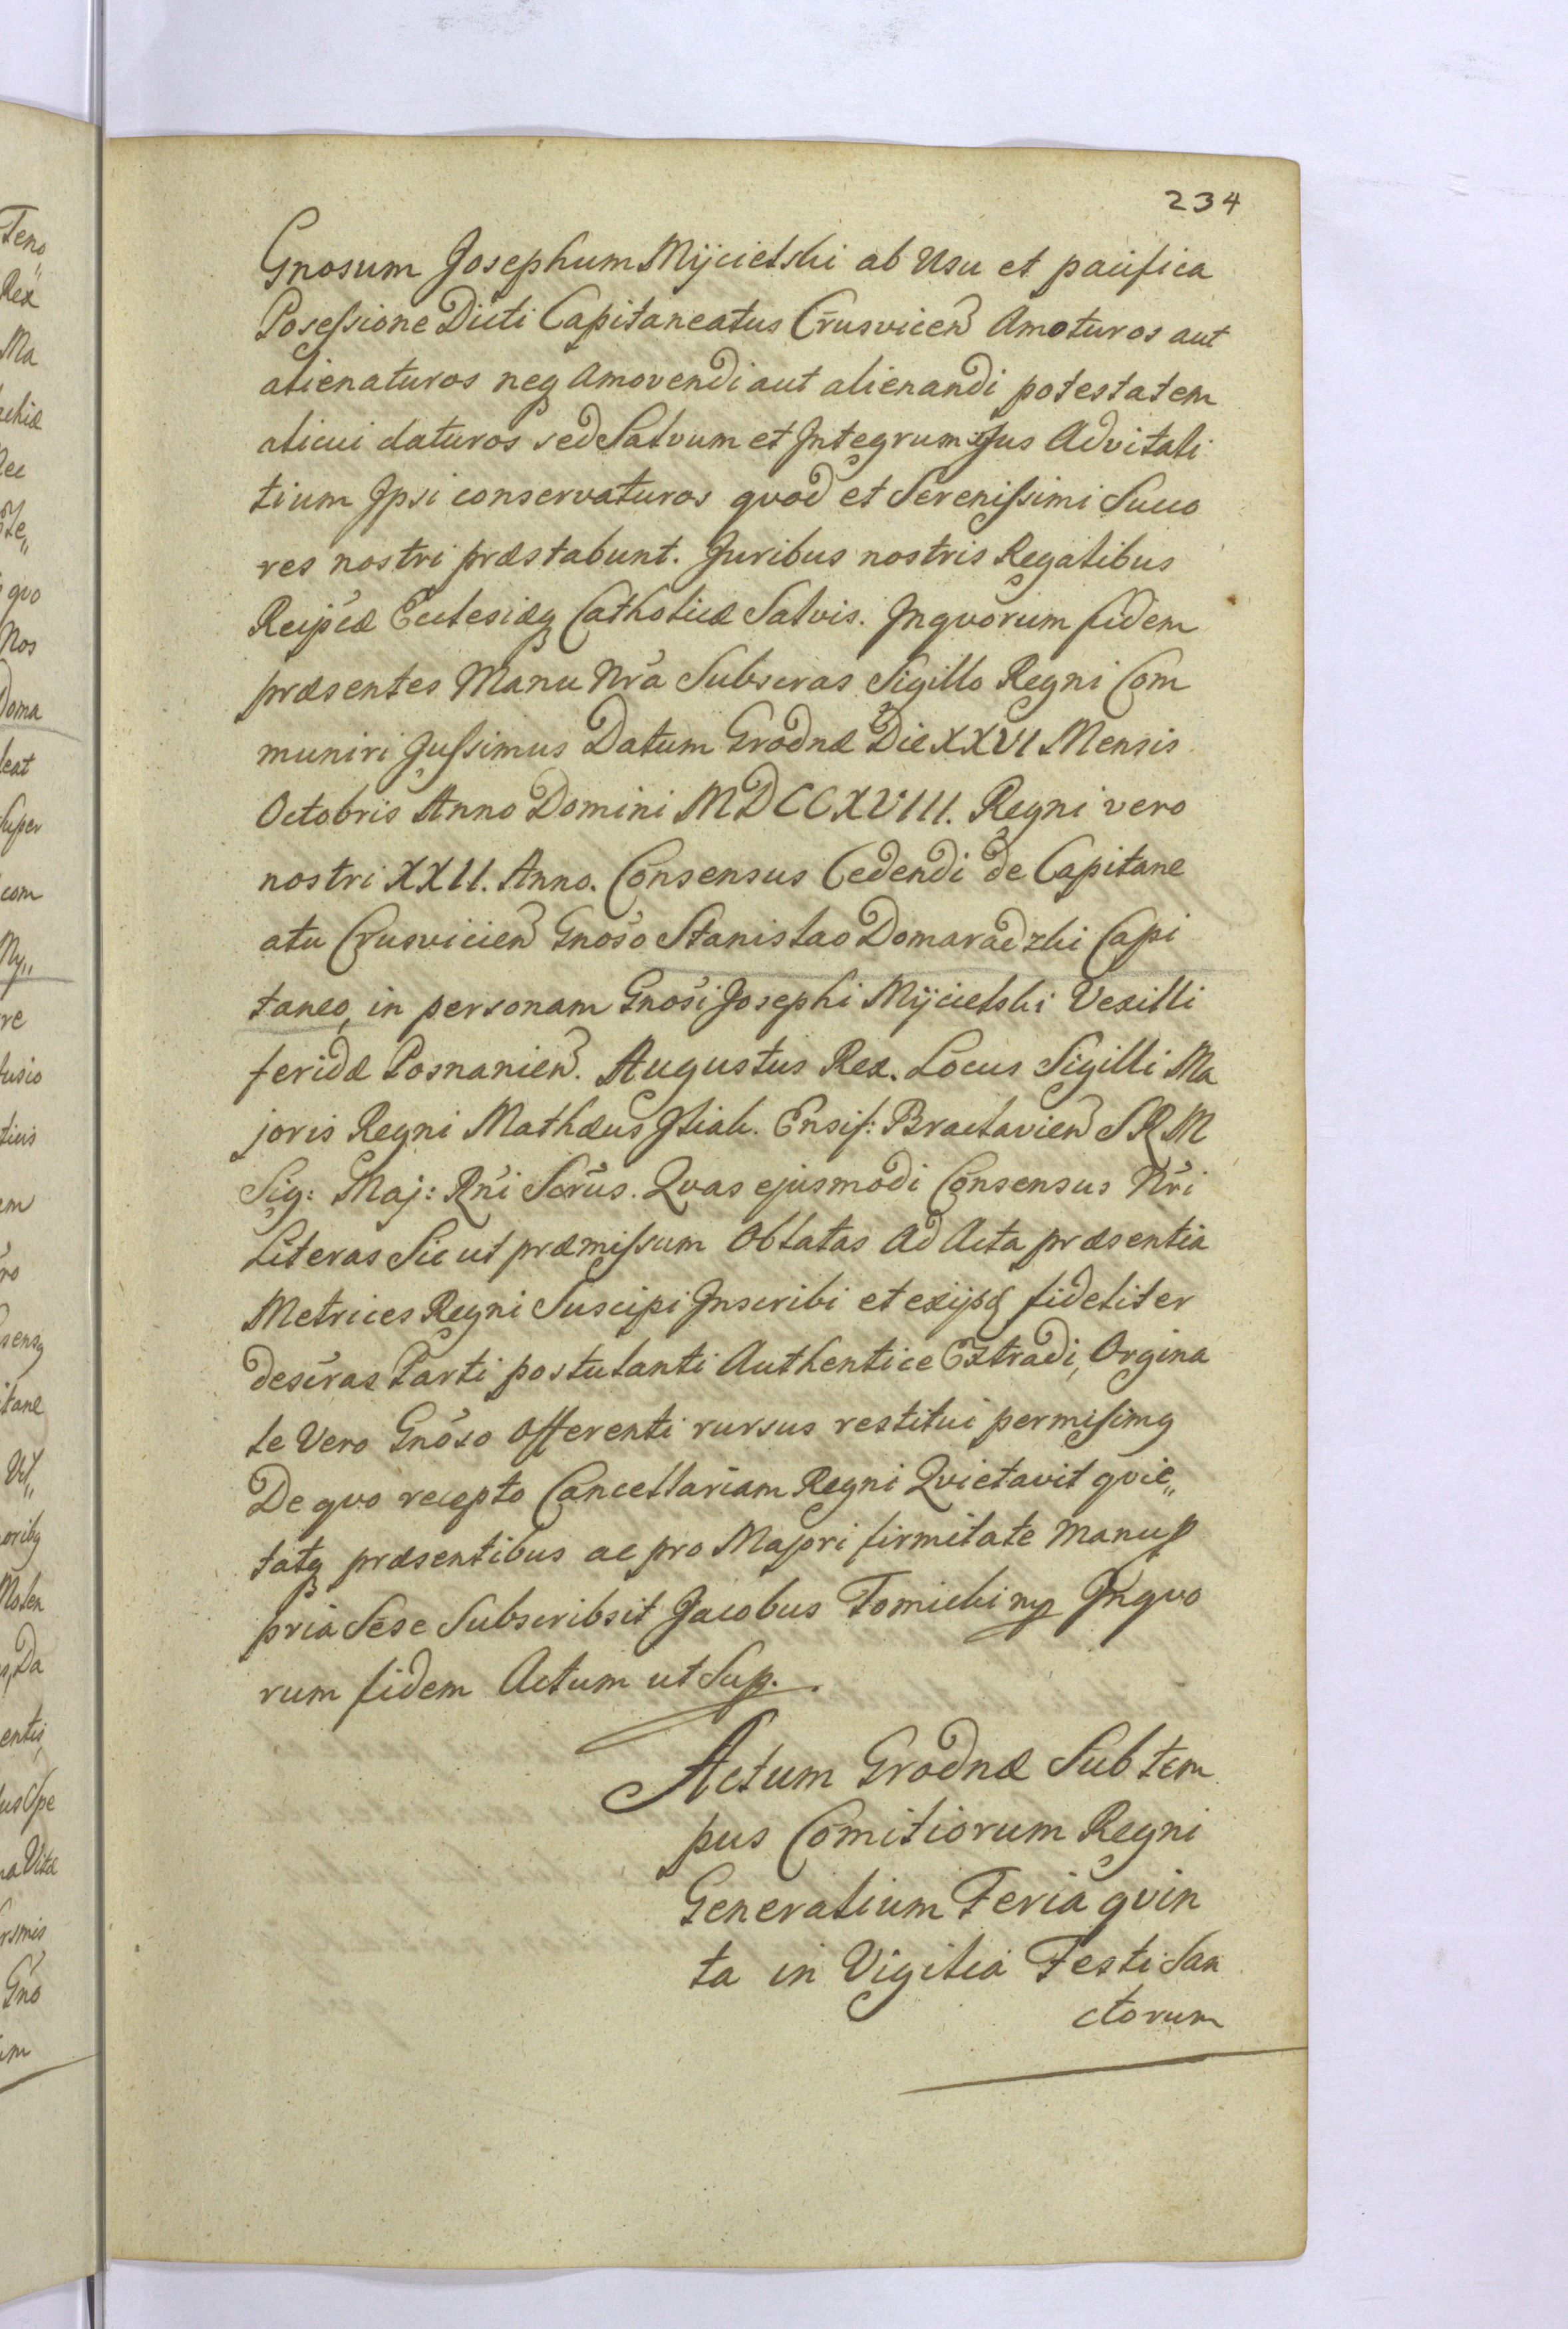 234
Gnosum Josephum Mÿcielski ab Usu et pacifica
Posessione Dicti Capitaneatus Crusvicen̄ Amoturos aut
alienaturos neqꝫ Amovendi aut alienandi potestatem
alicui daturos sed Salvum et Integrum Jus Advitali
tium Ipsi conservaturos quod et Serenissimi Succo
res nostri præstabunt. Juribus nostris Regalibus
Reipcæ Ecclesiæqꝫ Catholicæ Salvis. In quorum fidem
præsentes Manu Nrã Subscras Sigillo Regni Com
muniri Jussimus Datum Grodnæ Die XXVI Mensis
Octobris Anno Domini MDCCXVIII. Regni vero
nostri XXII. Anno. Consensus Cedendi de Capitane
atu Crusvicien̄ Gnoso Stanislao Domaradzki Capi
taneo, in personam Gnosi Josephi Mÿcielski Vexilli
feridæ Posnanien̄. Augustus Rex. Locus Sigilli Ma
joris Regni Mathæus Ensif: Bractavien̄ S R M
Sig: Maj: Rni Scrus. Quas ejusmodi Consensus Nri
Literas Sic ut præmissum Oblatas Ad Acta præsentia
Metrices Regni Suscipi Inscribi et exijsqꝫ fideliter
descras Parti postulanti Authentice Extradi, Orgina
le Vero Gnoso Offerenti rursus restitui permisimqꝫ
De quo recepto Cancellariam Regni Quietavit quie„
tatqꝫ præsentibus ac pro Majori firmitate Manu p
pria Sese Subscribsit Jacobus Tomicki mp In quo
rum fidem Actum ut Sup.
Actum Grodnæ Sub tem
pus Comitiorum Regni
Generalium Feria quin
ta in Vigilia Festi San
ctorum
Teno„
Rex
Ma
quo
Nos
Doma
leat
super
com
My„
re
tane
Da
Vita
Gno